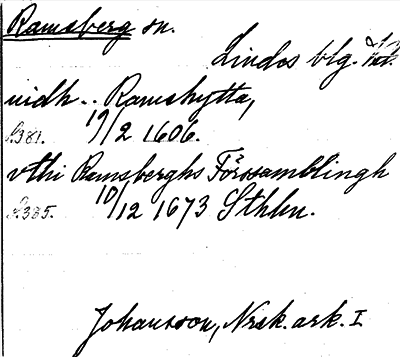 Ramsberg sn.
Lindes blg.
vidh .. Ramshytta,
s. 381. 19/2 1606.
vthi Ramsberghs Församblingh
s. 385. 10/12 1673 Sthlm.
Johansson, Norsk. ark. I